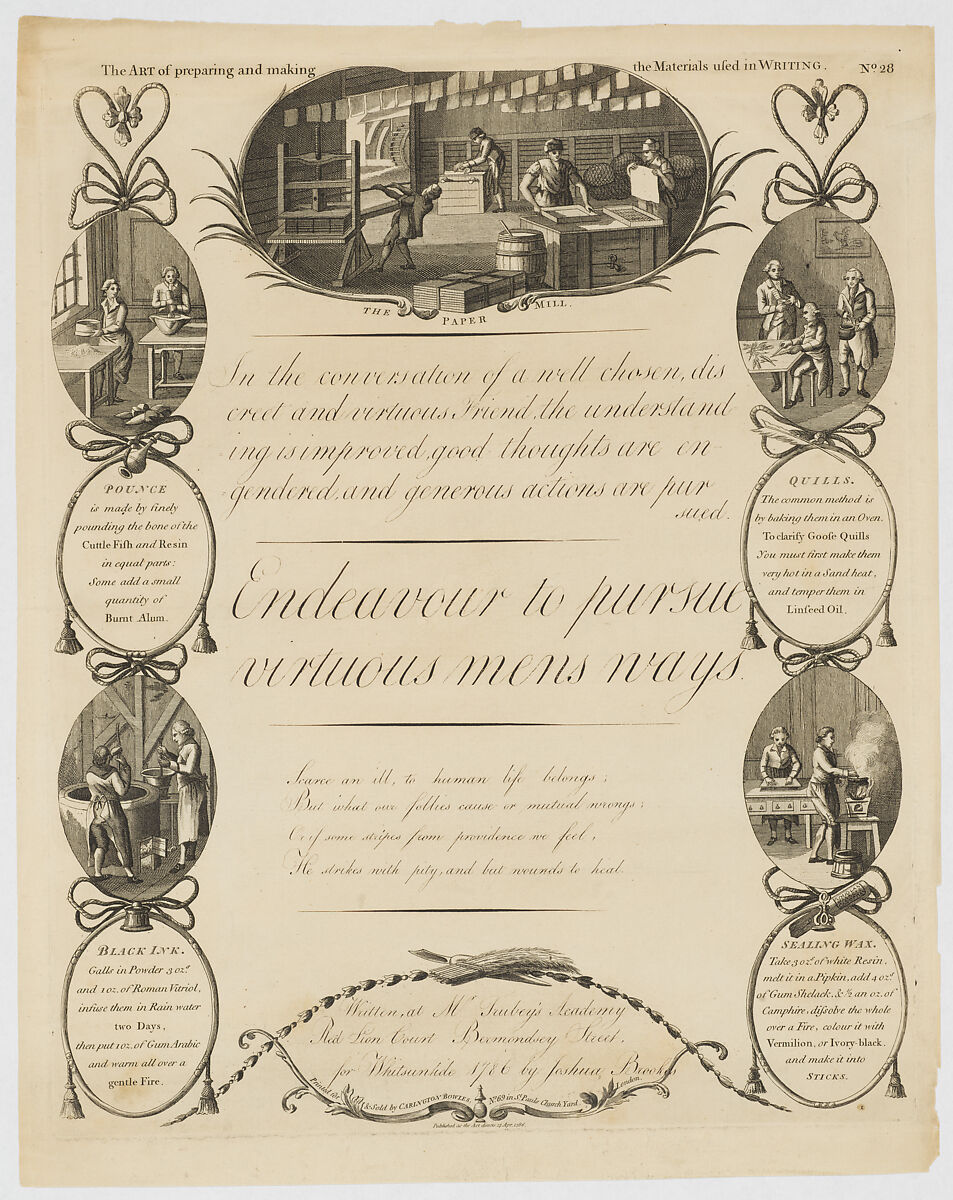 The ART of preparing and making the Materials uſed in WRITING. No. 28
THE PAPER MILL.
In the conversation of a well chosen, dis
creet and virtuous Friend, the understand
ing is improved, good thoughts are en-
gendered, and generous actions are pur
sued.
Endeavour to pursue
virtuous mens ways.
Scarce an ill, to human life belongs;
But what our follies cause or mutual wrongs;
Or if some stripes from providence we feel,
He strikes with pity, and but wounds to heal.
POUNCE
is made by finely
pounding the bone of the
Cuttle Fiſh and Resin
in equal parts:
Some add a small
quantity of
Burnt Alum.
QUILLS.
The common method is
by baking them in an Oven.
To clarify Gooſe Quills
You must first make them
very hot in a Sand heat,
and temper them in
Linſeed Oil.
BLACK INK.
Galls in Powder 3 oz.s
and 1 oz. of Roman Vitriol,
infuse them in Rain water
two Days,
then put 1 oz. of Gum Arabic
and warm all over a
gentle Fire.
SEALING WAX.
Take 3 oz.s of white Resin,
melt it in a Pipkin, add 4 oz.s
of Gum Shelack, & ½ an oz. of
Camphire, diſsolve the whole
over a Fire, colour it with
Vermilion, or Ivory-black,
and make it into
STICKS.
Written, at Mr
Academy
Red Lion Court Bermondsey Street,
for Whitsuntide 1786 by Joshua Brookes
Printed for & Sold by CARINGTON BOWLES, No. 69 in St. Pauls Church Yard, London.
Published as the Act directs